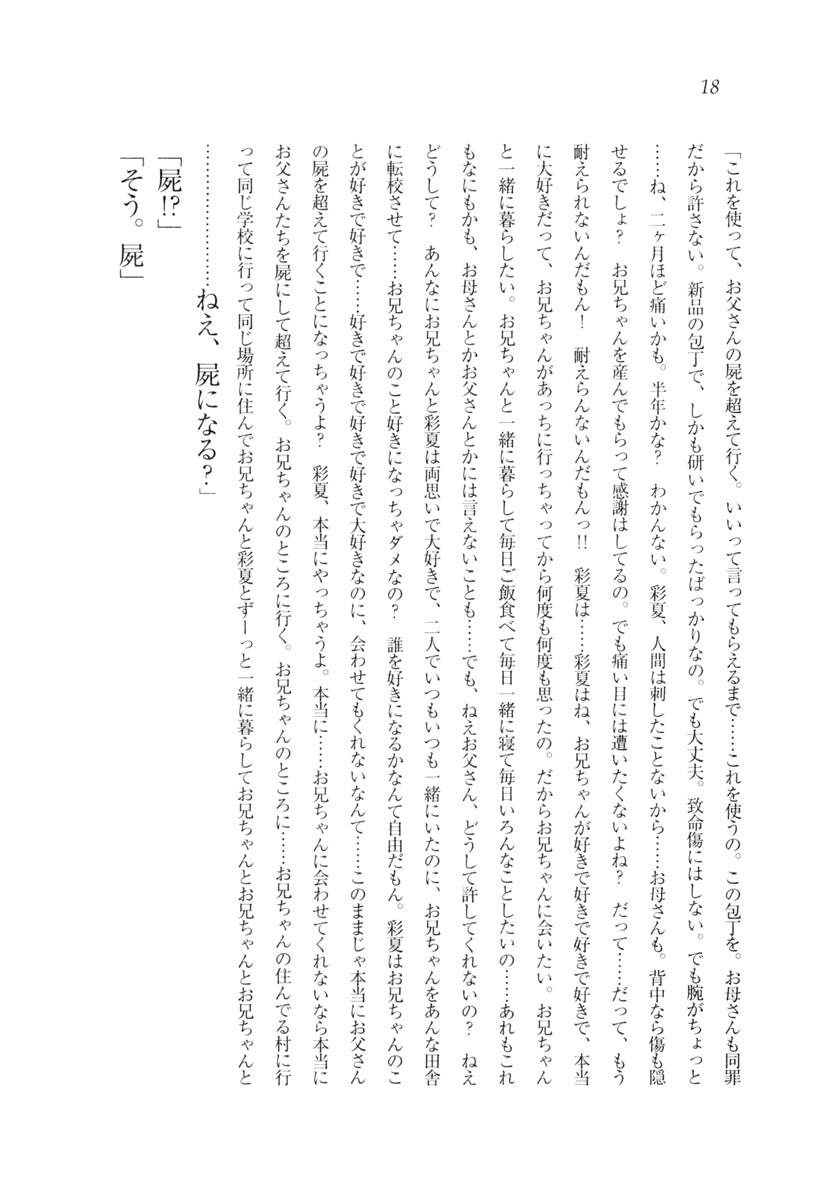 18
「これを使って、お父さんの屍を超えて行く。いいって言ってもらえるまで……これを使うの。この包丁を。お母さんも同罪
だから許さない。新品の包丁で、しかも研いでもらったばっかりなの。でも大丈夫。致命傷にはしない。でも腕がちょっと
……ね、二ヶ月ほど痛いかも。半年かな？　わかんない。彩夏、人間は刺したことないから……お母さんも。背中なら傷も隠
せるでしょ？　お兄ちゃんを産んでもらって感謝はしてるの。でも痛い目には遭いたくないよね？　だって……だって、もう
耐えられないんだもん！　耐えらんないんだもんっ!!　彩夏は……彩夏はね、お兄ちゃんが好きで好きで好きで好きで、本当
に大好きだって、お兄ちゃんがあっちに行っちゃってから何度も何度も思ったの。だからお兄ちゃんに会いたい。お兄ちゃん
と一緒に暮らしたい。お兄ちゃんと一緒に暮らして毎日ご飯食べて毎日一緒に寝て毎日いろんなことしたいの……あれもこれ
もなにもかも、お母さんとかお父さんとかには言えないことも……でも、ねえお父さん、どうして許してくれないの？　ねえ
どうして？　あんなにお兄ちゃんと彩夏は両思いで大好きで、二人でいつもいつも一緒にいたのに、お兄ちゃんをあんな田舎
に転校させて……お兄ちゃんのこと好きになっちゃダメなの？　誰を好きになるかなんて自由だもん。彩夏はお兄ちゃんのこ
とが好きで好きで……好きで好きで好きで好きで大好きなのに、会わせてもくれないなんて……このままじゃ本当にお父さん
の屍を超えて行くことになっちゃうよ？　彩夏、本当にやっちゃうよ。本当に……お兄ちゃんに会わせてくれないなら本当に
お父さんたちを屍にして超えて行く。お兄ちゃんのところに行く。お兄ちゃんのところに……お兄ちゃんの住んでる村に行
って同じ学校に行って同じ場所に住んでお兄ちゃんと彩夏とずーっと一緒に暮らしてお兄ちゃんとお兄ちゃんとお兄ちゃんと
……………………ねえ、屍になる？」
「屍!?」
「そう。屍」